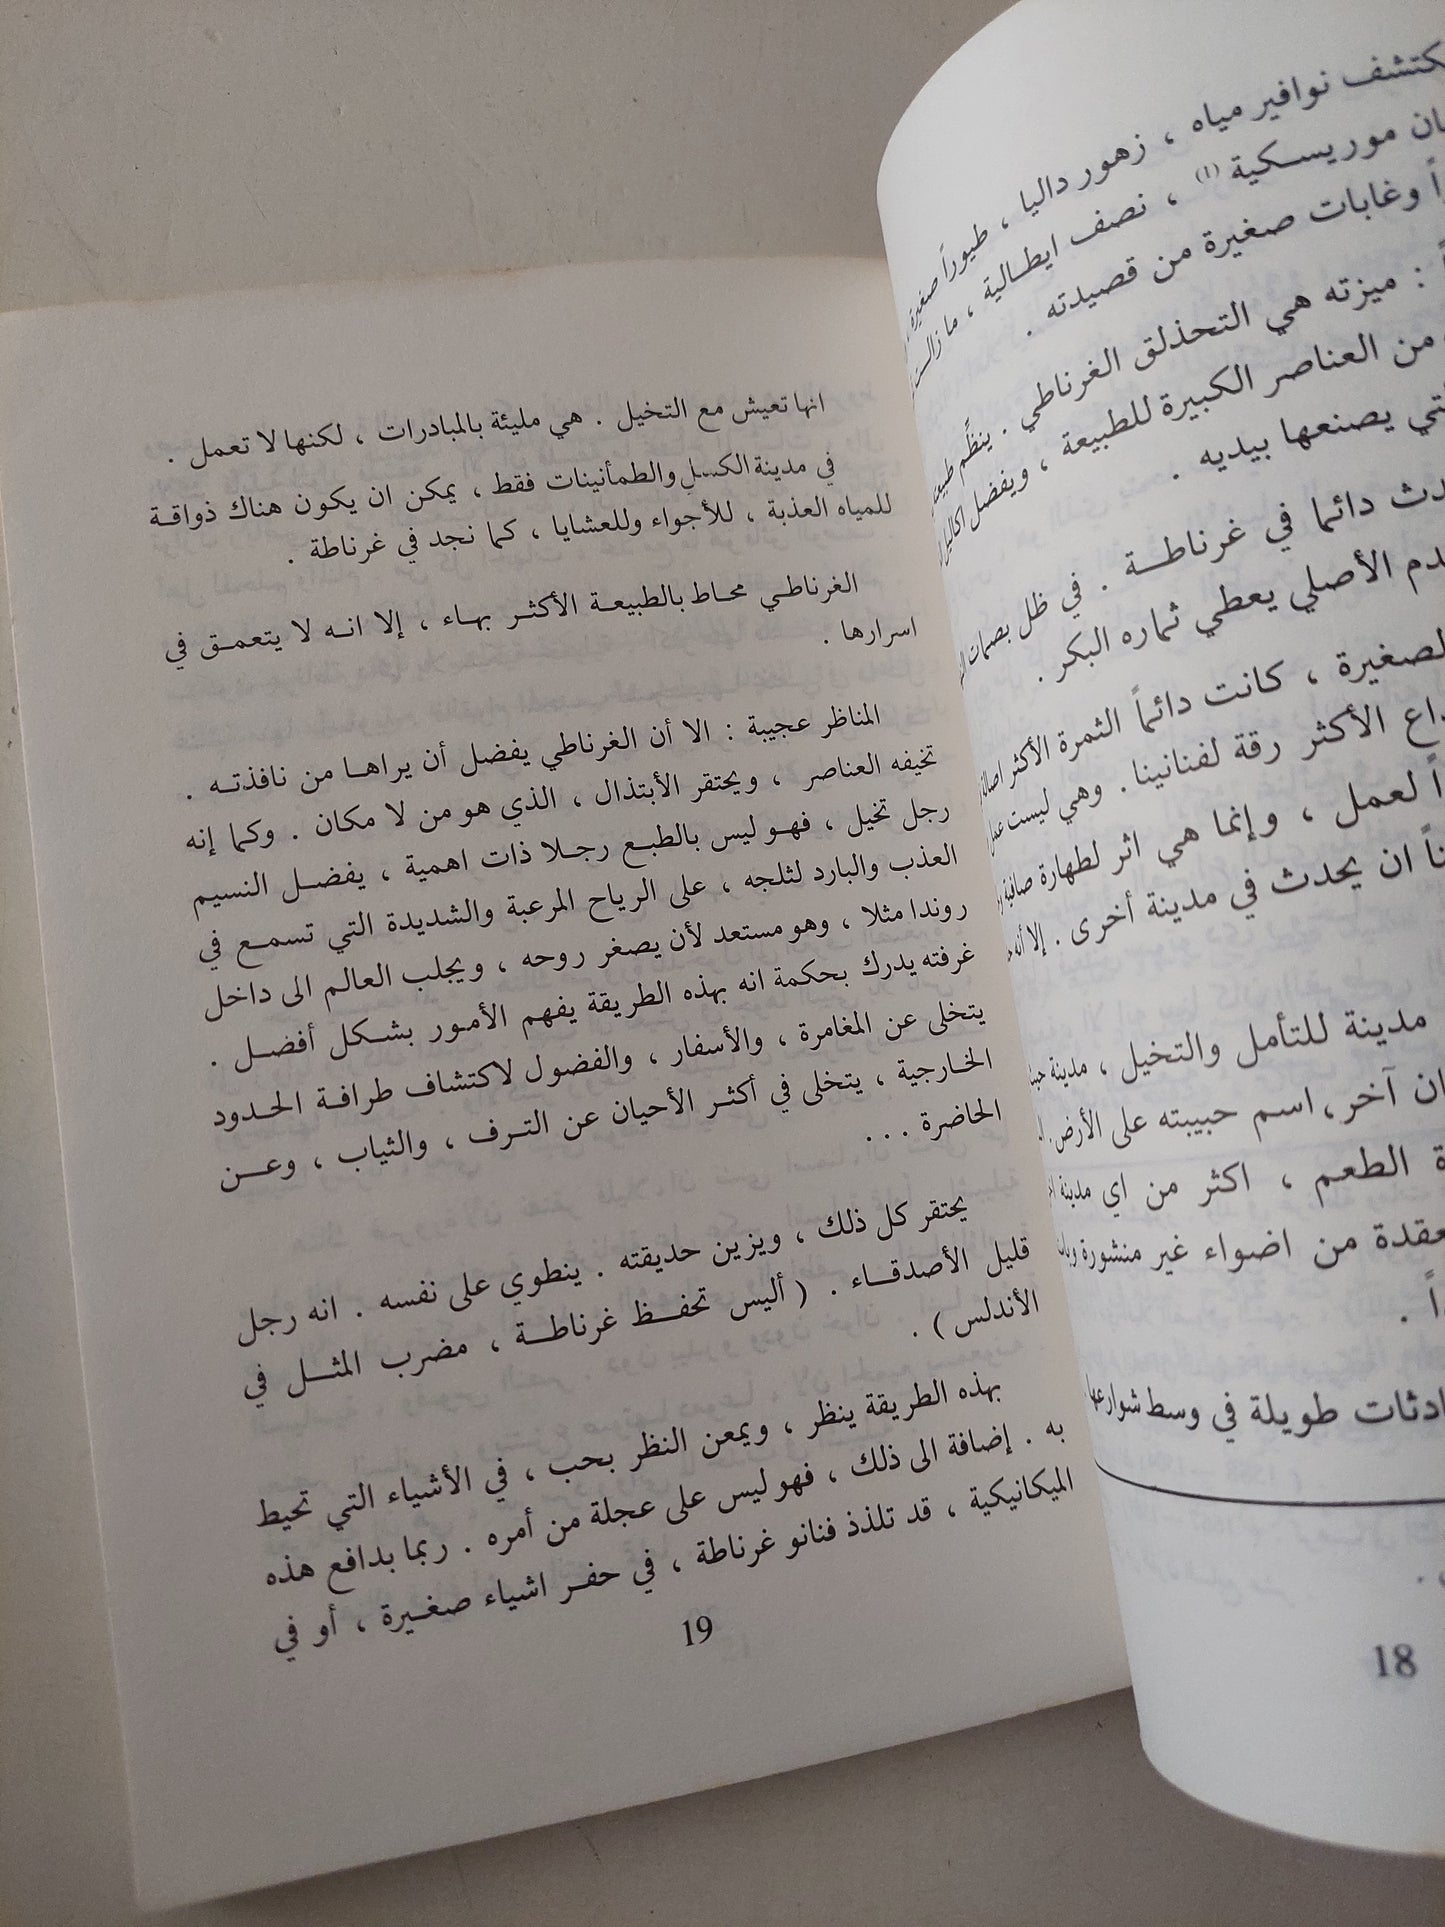 نوافير مياه ، زهور داليا ، طيوراً صغيرة
موريسكية (١) ، نصف ايطالية ، ما زالت
وغابات صغيرة من قصيدته .
: ميزته هي التحذلق الغرناطي . ينظّم
من العناصر الكبيرة للطبيعة ، ويفضل
يصنعها بيديه .
دائما في غرناطة . في ظل بصمات
الأصلي يعطي ثماره البكر .
، كانت دائماً الثمرة الأكثر
الأكثر رقة لفنانينا . وهي ليست
لعمل ، وإنما هي اثر لطهارة صافية
ان يحدث في مدينة أخرى . إلا أنه
مدينة للتأمل والتخيل ، مدينة
آخر ، اسم حبيبته على الأرض .
الطعم ، اكثر من اي مدينة
من اضواء غير منشورة
طويلة في وسط شوارعها
18
انها تعيش مع التخيل . هي مليئة بالمبادرات ، لكنها لا تعمل .
في مدينة الكسل والطمأنينات فقط ، يمكن ان يكون هناك ذواقة
للمياه العذبة ، للأجواء وللعشايا ، كما نجد في غرناطة .
الغرناطي محاط بالطبيعة الأكثر بهاء ، إلا انه لا يتعمق في
اسرارها .
المناظر عجيبة : الا أن الغرناطي يفضل أن يراها من نافذته .
تخيفه العناصر ، ويحتقر الأبتذال ، الذي هو من لا مكان . وكما إنه
رجل تخيل ، فهو ليس بالطبع رجلا ذات اهمية ، يفضل النسيم
العذب والبارد لثلجه ، على الرياح المرعبة والشديدة التي تسمع في
روندا مثلا ، وهو مستعد لأن يصغر روحه ، ويجلب العالم الى داخل
غرفته يدرك بحكمة انه بهذه الطريقة يفهم الأمور بشكل أفضل .
يتخلى عن المغامرة ، والأسفار ، والفضول لاكتشاف طرافة الحدود
الخارجية ، يتخلى في أكثر الأحيان عن الترف ، والثياب ، وعن
الحاضرة ...
يحتقر كل ذلك ، ويزين حديقته . ينطوي على نفسه . انه رجل
قليل الأصدقاء . ( أليس تحفظ غرناطة ، مضرب المثل في
الأندلس ) .
بهذه الطريقة ينظر ، ويمعن النظر بحب ، في الأشياء التي تحيط
به . إضافة الى ذلك ، فهو ليس على عجلة من أمره . ربما بدافع هذه
الميكانيكية ، قد تلذذ فنانو غرناطة ، في حفر اشياء صغيرة ، أو في
19